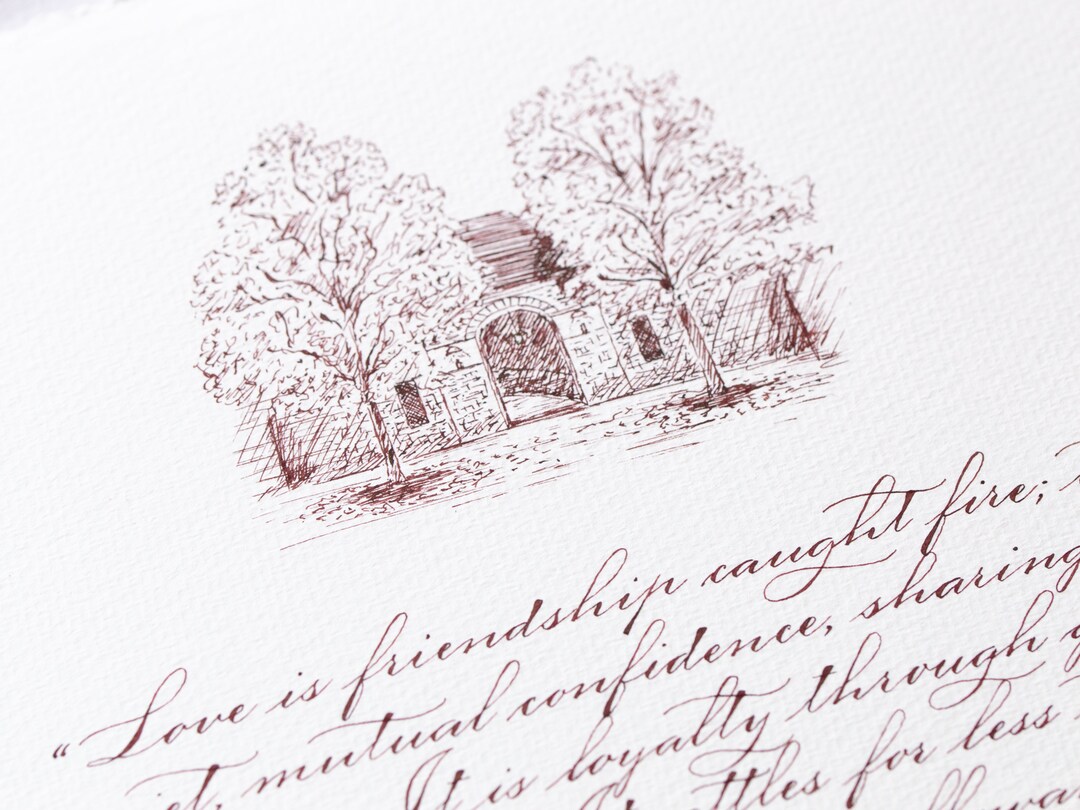 “Love is friendship caught fire;
mutual confidence, sharing
It is loyalty through
for less